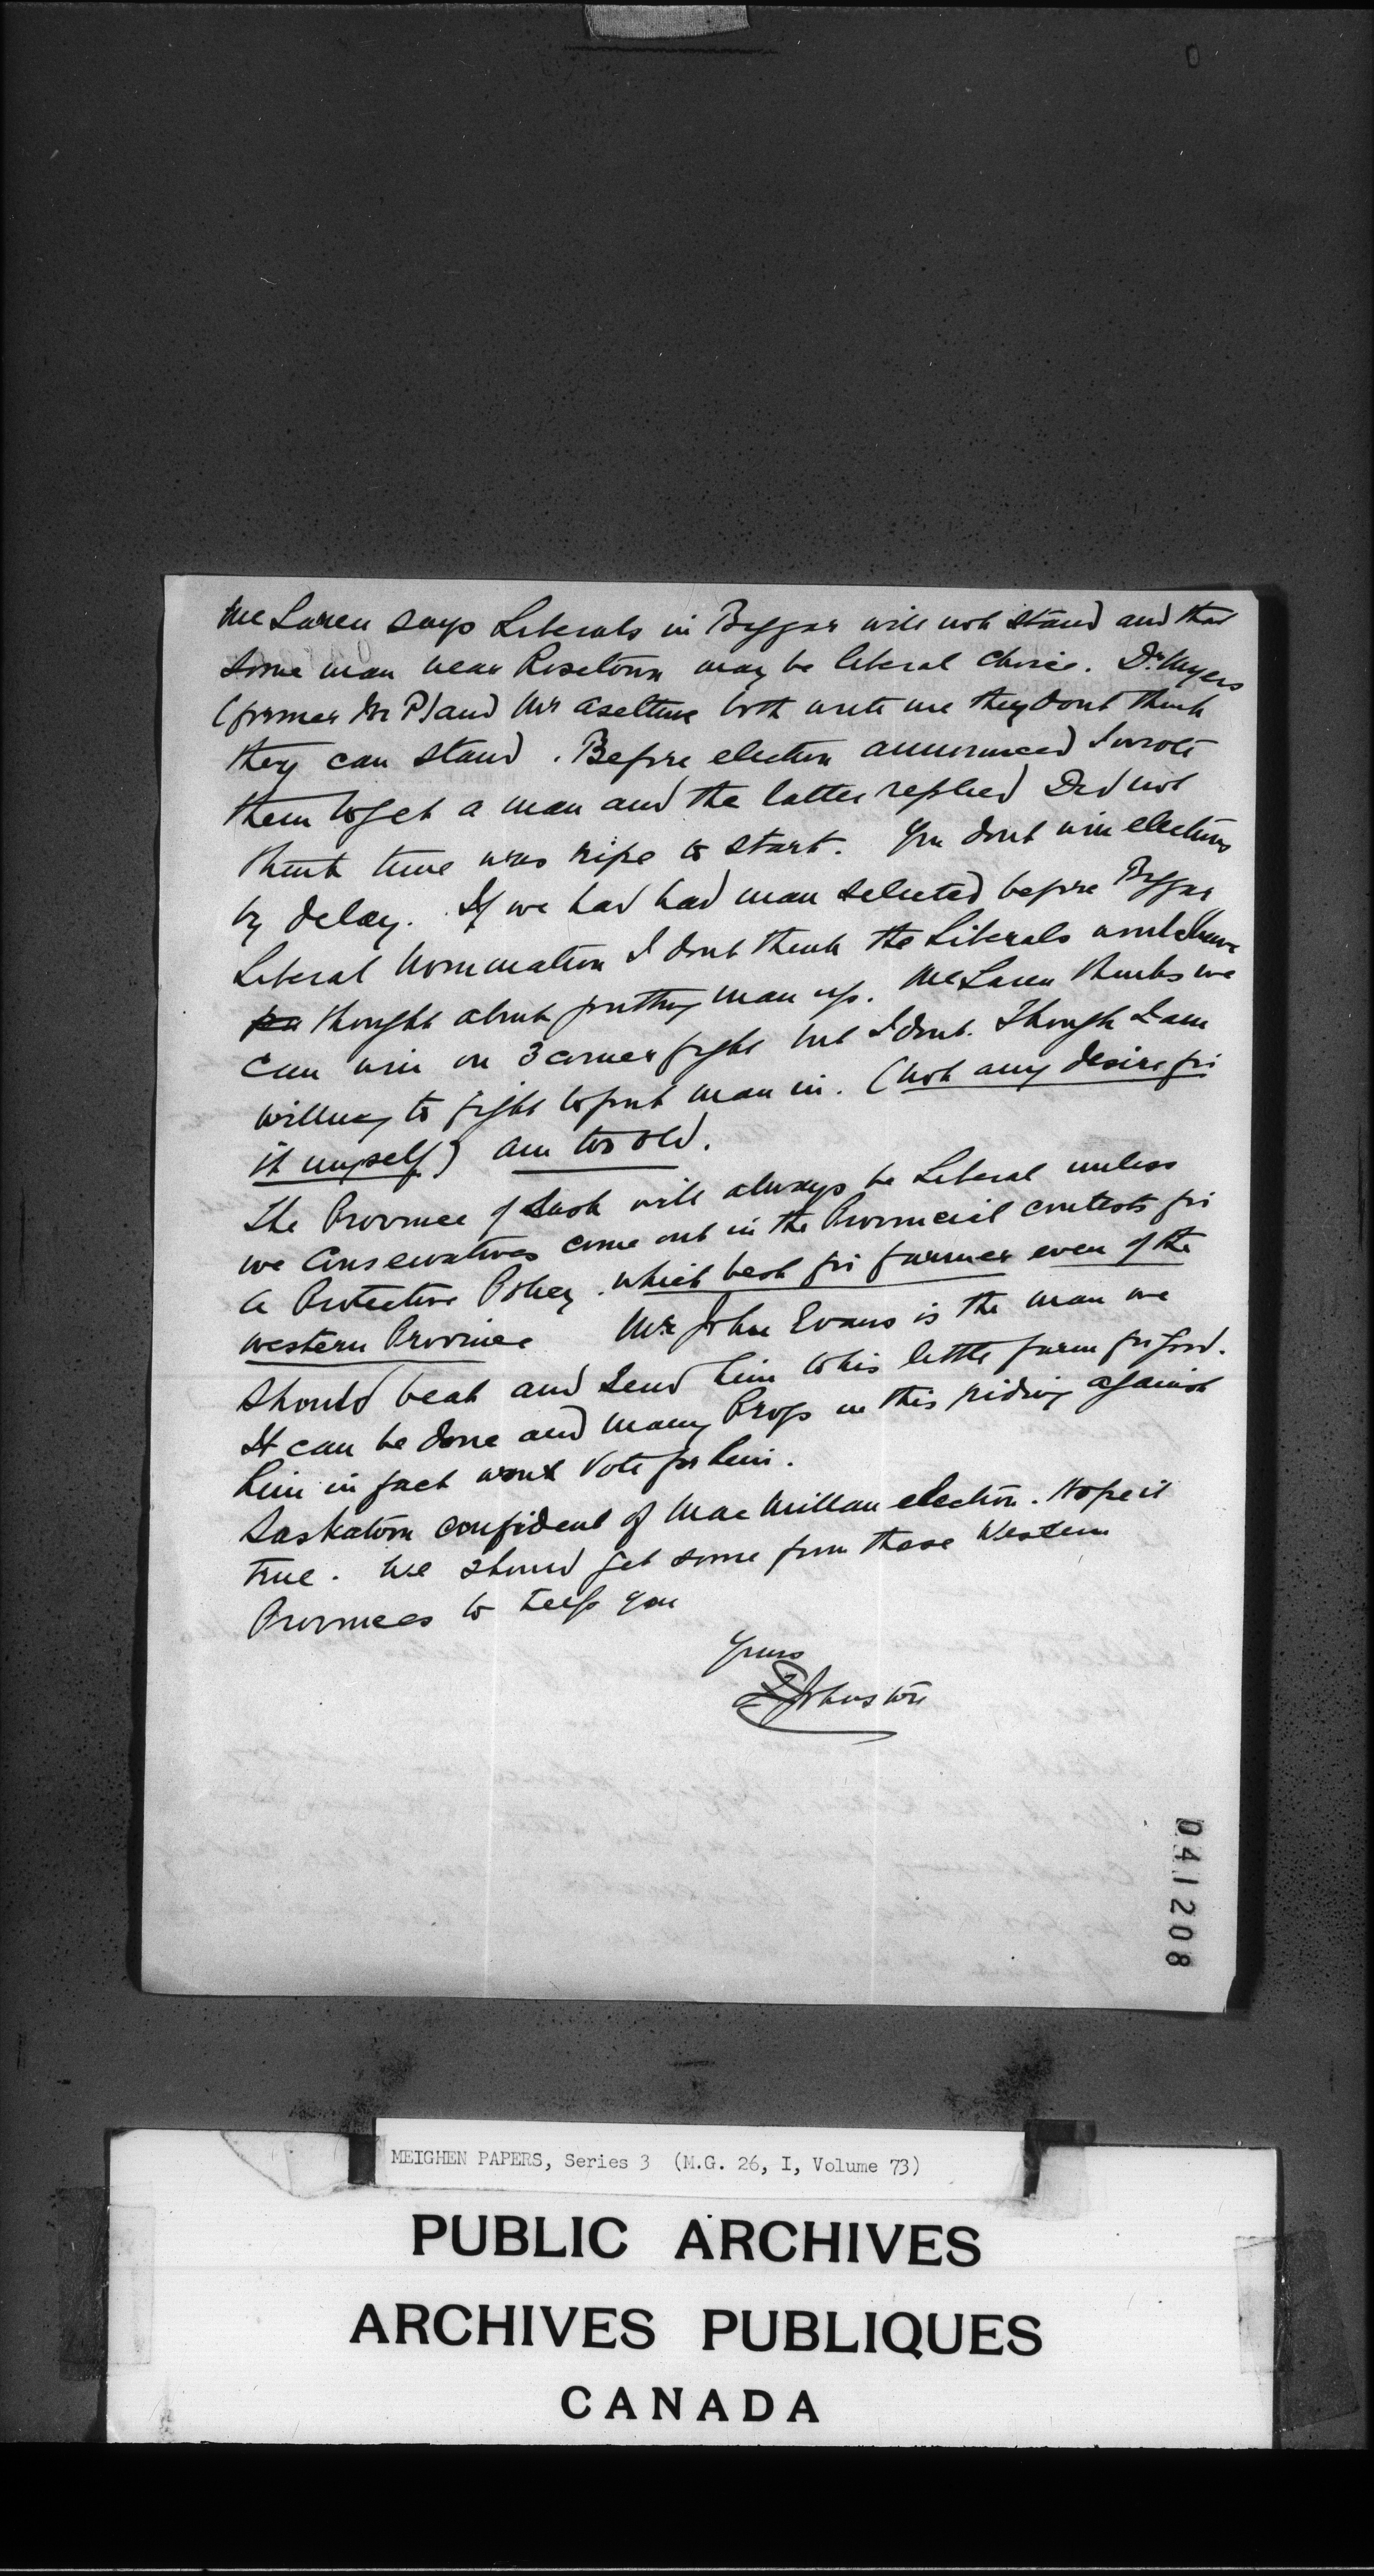 McLaren says Liberals in Biggar will not stand and that
some man near Rosetown may be liberal choice. Dr Myers
(former M P) and Mr Aseltine both write me they dont think
they can stand. Before election announced I wrote
them to get a man and the latter replied Did not
think time was ripe to start. You dont win elections
by delay. If we had had man selected before Biggar
Liberal Nomination I dont think the Liberals would have
thought about putting man up. McLaren thinks we
can win on 3 corner fight but I dont. Though I am
willing to fight to put man in. (not any desire for
it myself) am too old.
The Province of Sask will always be Liberal unless
we Conservatives come out in the Provincial contests for
a Protective Policy. which best for farmer even of the
western Province Mr John Evans is the man we
should beat and send him to his little farm for good.
It can be done and many Progs in this riding against
him in fact wont vote for him.
Saskatoon confident of MacMillan election. Hope it
true. We should get some from these Western
Provinces to help you
Yours
Johnston
041208
MEIGHEN PAPERS, Series 3 (M.G. 26, I, Volume 73)
PUBLIC ARCHIVES
ARCHIVES PUBLIQUES
CANADA